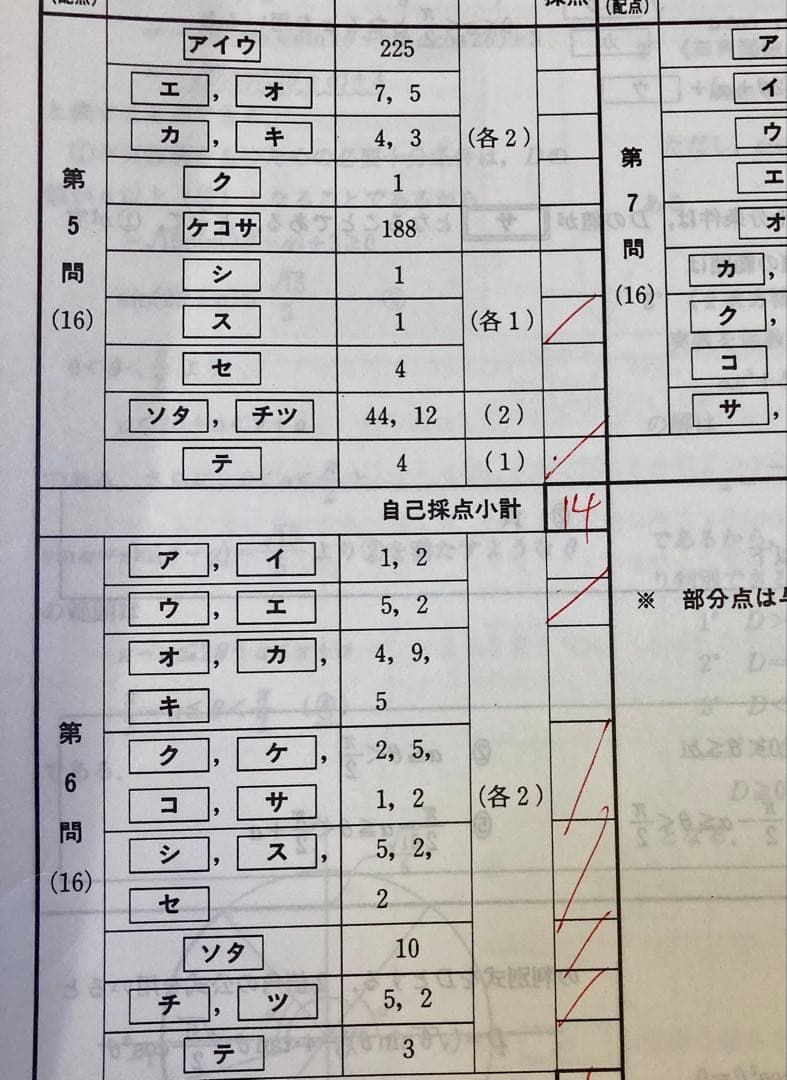 (配点)
採点
(配点)
アイウ 225
エ , オ 7, 5
カ , キ 4, 3 (各2)
ク 1
ケコサ 188
シ 1
ス 1 (各1)
セ 4
ソタ , チツ 44, 12 (2)
テ 4 (1)
第5問(16)
自己採点小計 14
ア , イ 1, 2
ウ , エ 5, 2
オ , カ , 4, 9,
キ 5
ク , ケ , 2, 5,
コ , サ 1, 2 (各2)
シ , ス , 5, 2,
セ 2
ソタ 10
チ , ツ 5, 2
テ 3
第6問(16)
ア
イ
ウ
エ
オ
カ ,
ク ,
コ
サ ,
第7問(16)
※ 部分点は